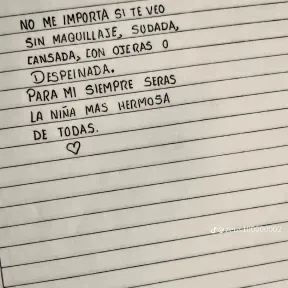 NO ME IMPORTA SI TE VEO
SIN MAQUILLAJE, SUDADA,
CANSADA, CON OJERAS O
DESPEINADA.
PARA MI SIEMPRE SERAS
LA NIÑA MAS HERMOSA
DE TODAS.